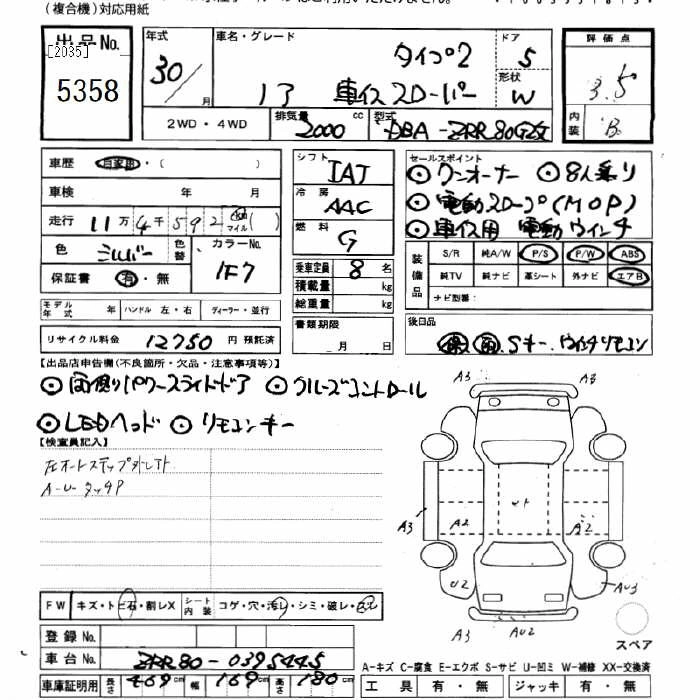 (複合機)対応用紙
出品No.
[2035]
5358
年式
30/
月
車名・グレード
タイプ2
1ア 車イススローパー
ドア
5
形状
W
2WD・4WD
排気量
2000
cc
型式
DBA-ZRR80G改
評価点
3.5
内装
B
車歴
自家用・( )
車検 年 月
走行 11万4千592 km マイル ( )
色 シルバー
色替
カラーNo.
1F7
保証書 有・無
シフト
IAT
冷房
AAC
燃料
G
乗車定員 8 名
積載量 kg
総重量 kg
書類期限
月 日
セールスポイント
◎ワンオーナー ◎8人乗り
◎電動スロープ(MOP)
◎車イス用 電動ウインチ
装備品
S/R 純A/W P/S P/W ABS
純TV 純ナビ 革シート 外ナビ エアB
ナビ型番:
モデル年式 年 ハンドル 左・右 ディーラー・並行
リサイクル料金 12750 円 預託済
後日品
保 取 Sキー、ウインチリモコン
【出品店申告欄(不良箇所・欠品・注意事項等)】
◎両側りパワースライドドア ◎クルーズコントロール
◎LEDヘッド ◎リモコンキー
【検査員記入】
左オートステップ外レ
A-U-タッチP
A3 A3
A3 A2 A2
U2 AU3
A3 AU2
スペア
FW キズ・トビ石・割レX
シート内装 コゲ・穴・汚レ・シミ・破レ・スレ
登録No.
車台No. ZRR80-0395445
車庫証明用 長さ 469cm 幅 169cm 高さ 180cm
A-キズ C-腐食 E-エクボ S-サビ U-凹ミ W-補修 XX-交換済
工具 有・無 ジャッキ 有・無